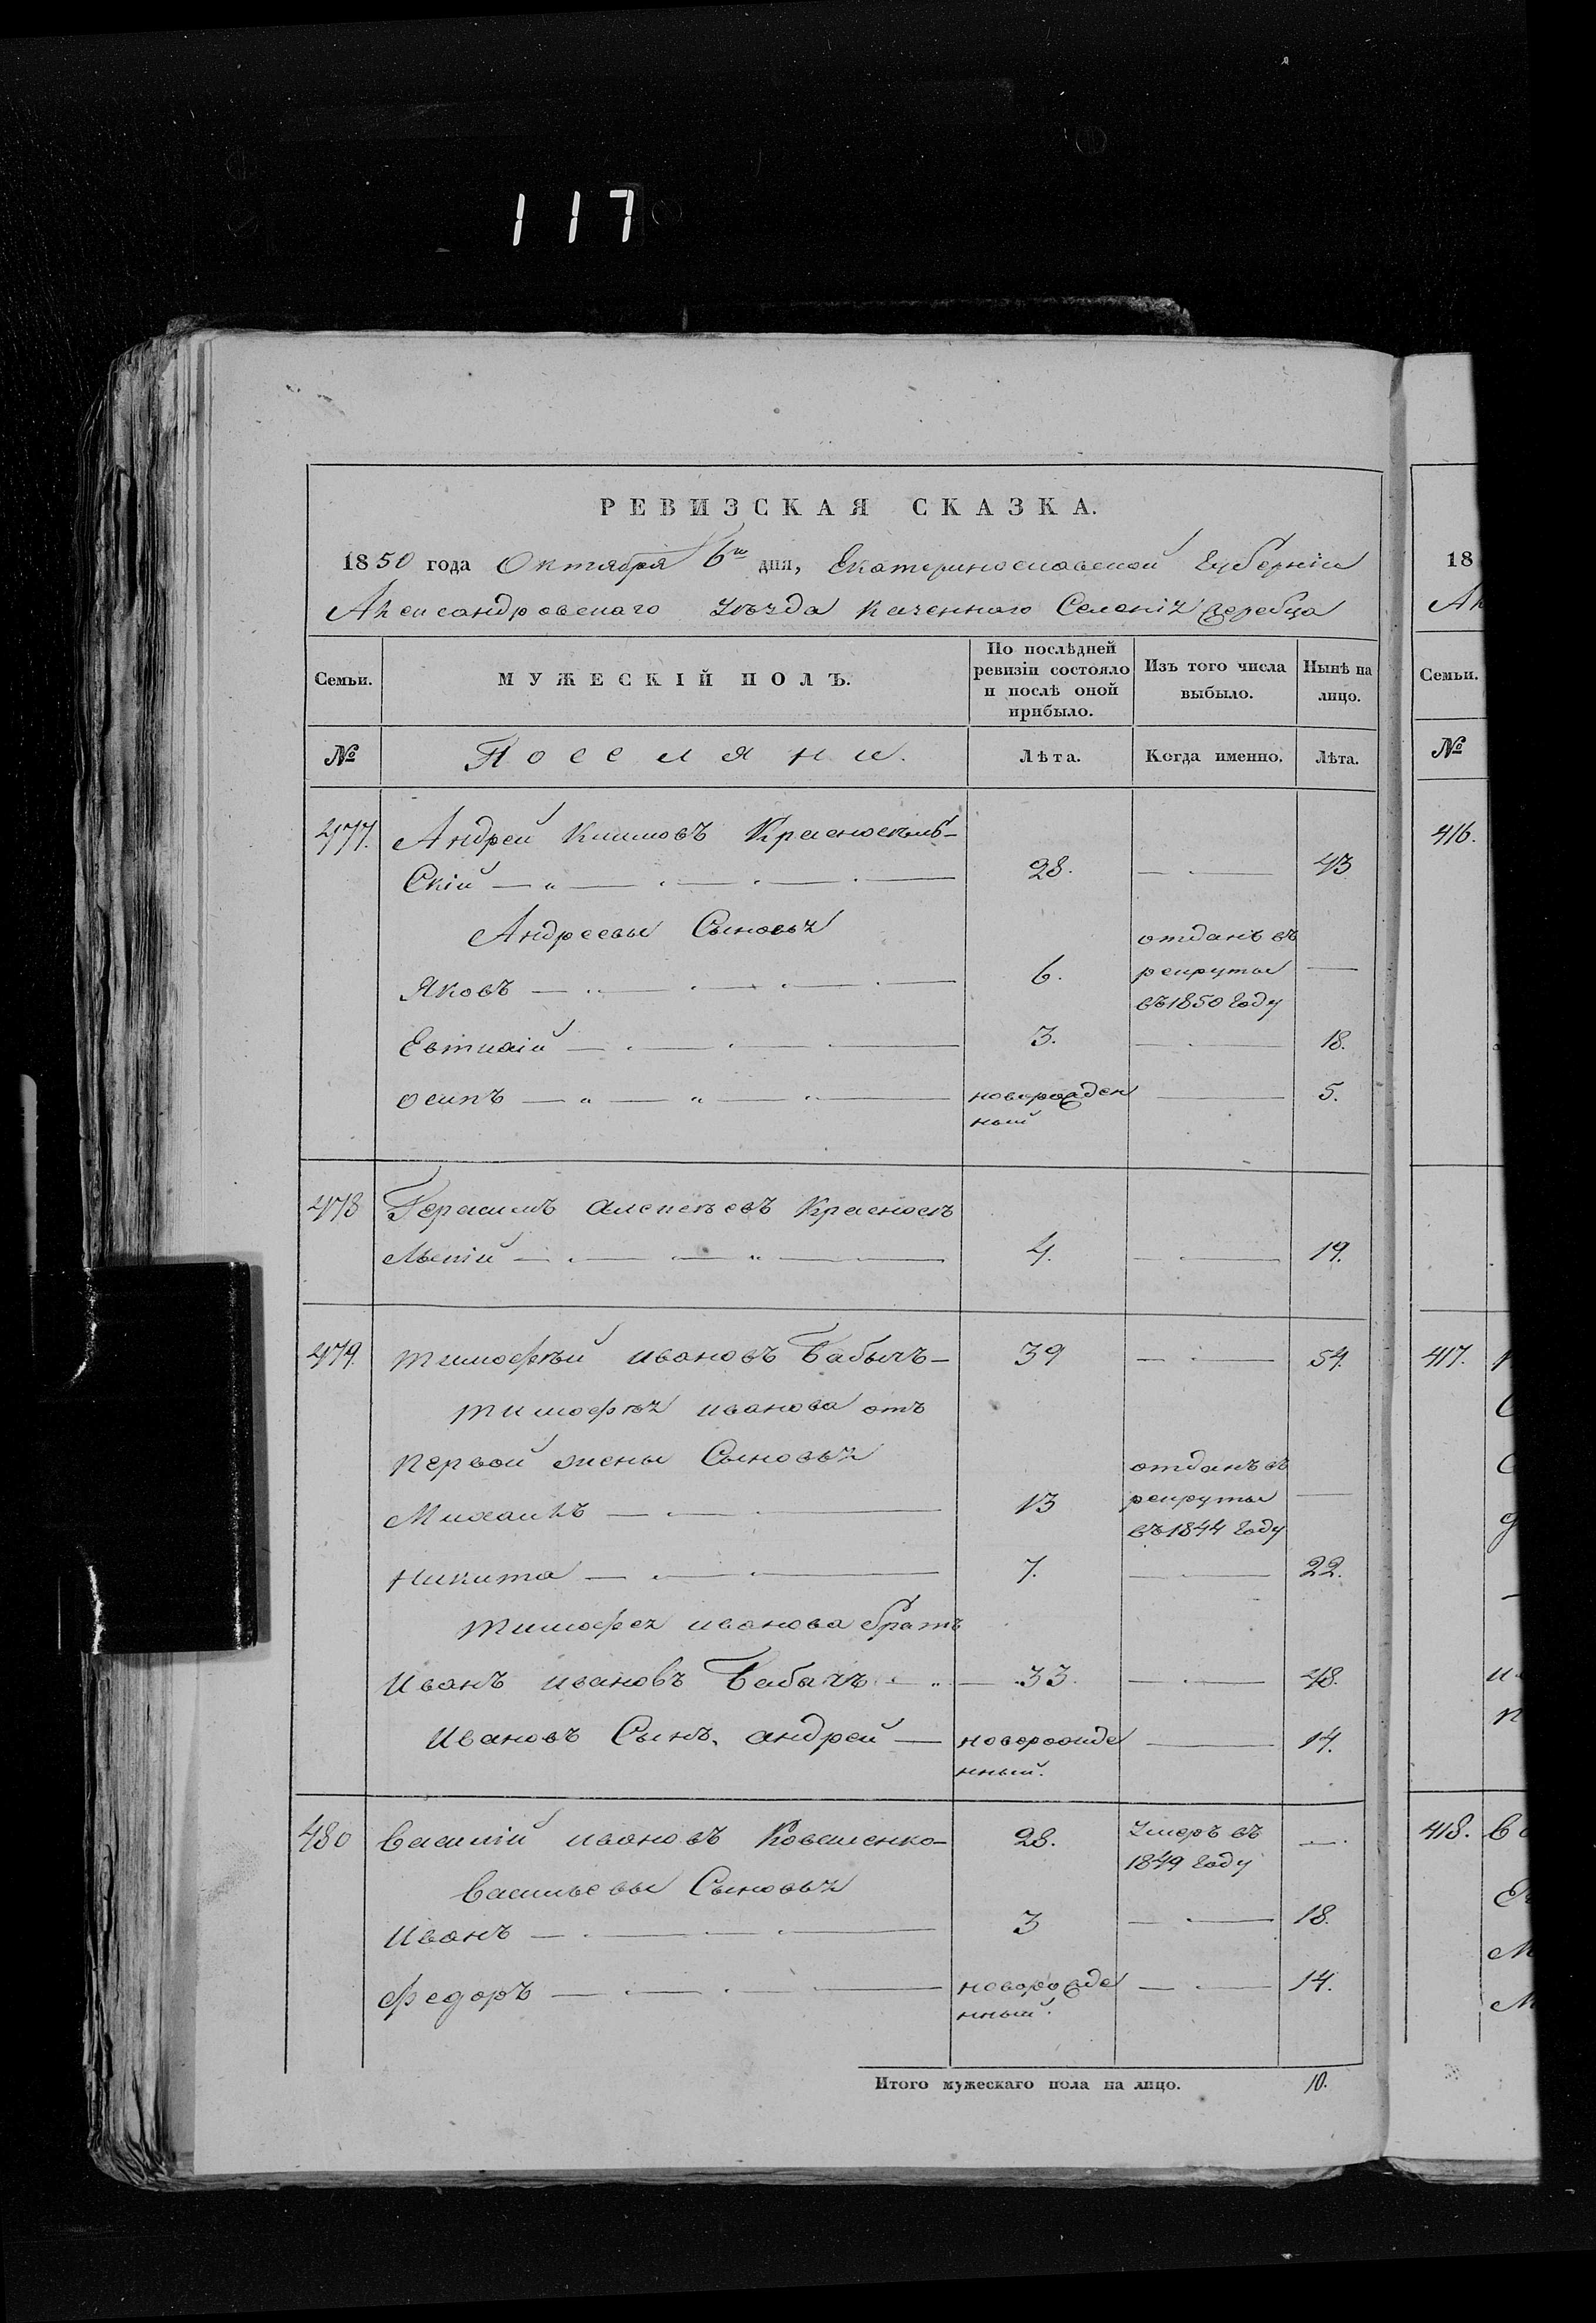 117
РЕВИЗСКАЯ СКАЗКА.
1850 года Октября 6го дня, Екатеринославской Губерніи
Александровскаго Уѣзда казеннаго Селенія Жеребца
Семьи.
МУЖЕСКІЙ ПОЛЪ.
По послѣдней ревизіи состояло и послѣ оной прибыло.
Изъ того числа выбыло.
Нынѣ на лицо.
№
Поселяни.
Лѣта.
Когда именно.
Лѣта.
477. Андрей Климовъ
Скій 28. 43
Андреевы Сыновья
Яковъ 6. отданъ въ рекруты въ 1850 году
Евтихій 3. 18.
Осипъ новорожден ный 5.
478 Герасимъ Алексѣевъ Красноск
льскій 4. 19.
479. Тимофѣй Ивановъ Бабычъ 39 54.
Тимофѣя Иванова отъ
первой жены Сыновья
Михаилъ 13 отданъ въ рекруты въ 1844 году
Никита 7. 22.
Тимофея Иванова братъ
Иванъ Ивановъ Бабычъ 33. 48.
Ивановъ Сынъ Андрей новорожде нный. 14.
480 Василій Ивановъ Коваленко 28. Умеръ въ 1849 году
Васильевы Сыновья
Иванъ 3 18.
Федоръ новорожде нный. 14.
Итого мужескаго пола на лицо. 10.
18
Ал
Семьи.
№
416.
417.
418.